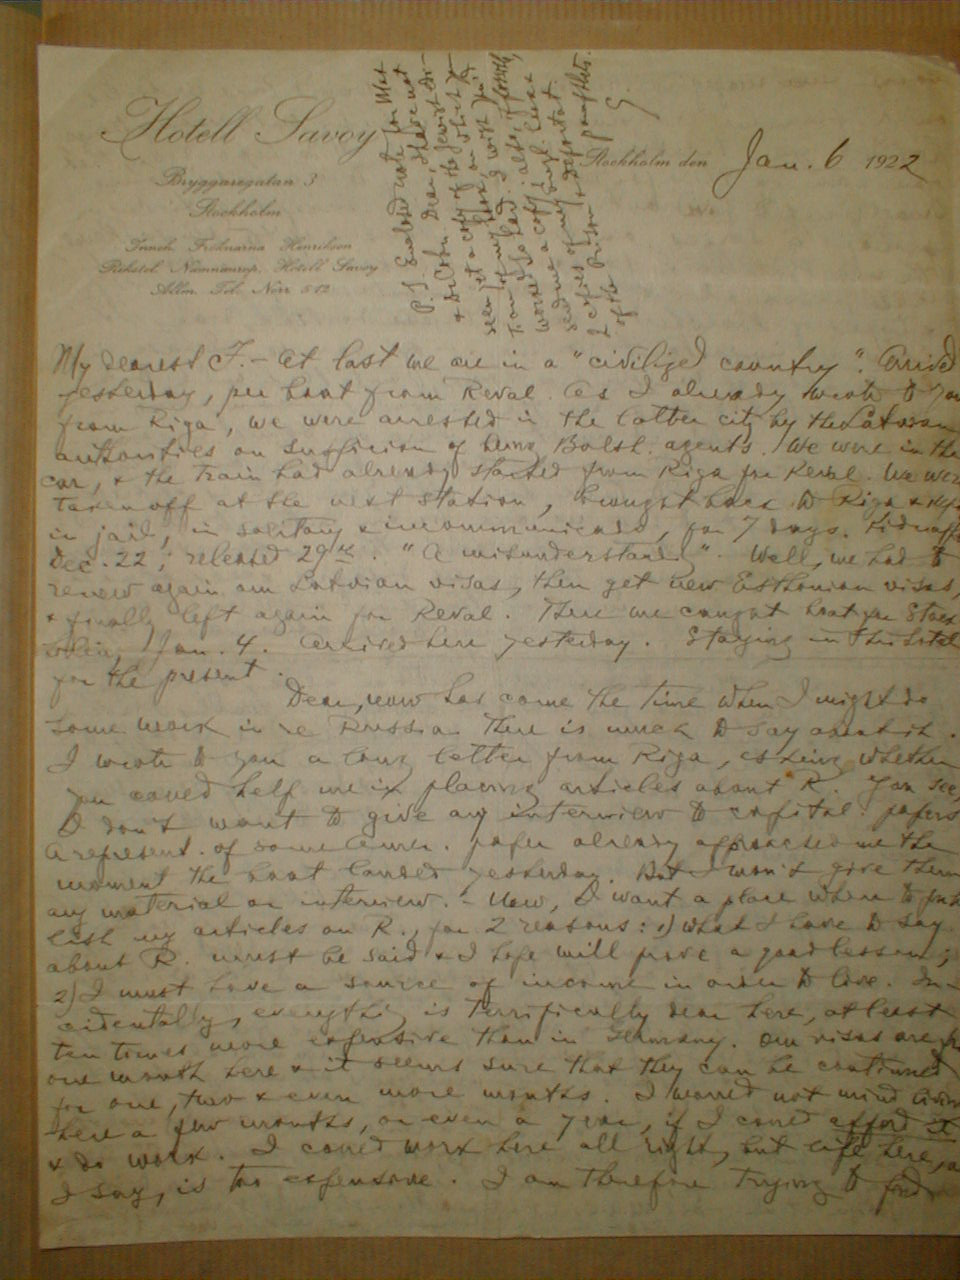 Hotell Savoy
Bryggaregatan 3
Stockholm
Inneh. Fröknarna Henrikson
Rikstel. Namnanrop, Hotell Savoy
Allm. Tel. Norr 512
Stockholm den Jan. 6 1922
P.S. Enclosed note for
& Dr Cohn. Dear, I have not
seen yet a copy of the Jewish
of my book, on which you
worked so hard. I wish you'd
send me a copy; also, if possible,
2 copies of my
of the Prison & Deportat. pamphlets.
My dearest F. – At last we are in a "civilized country". Arrived
yesterday, per boat from Reval. As I already wrote to you
from Riga, we were arrested in the latter city by the Latvian
authorities on suspicion of being Bolsh. agents. We were in the
car, & the train had already started from Riga for Reval. We were
taken off at the next station, brought back to Riga & kept
in jail, in solitary & incommunicado, for 7 days. Kidnapped
Dec. 22; released 29th. "A misunderstanding". Well, we had to
renew again our Latvian visas, then get new Esthonian visas,
& finally left again for Reval. There we caught boat for Stock
holm, Jan. 4. Arrived here yesterday. Staying in this hotel
for the present.
Dear, now has come the time when I might do
some work in re Russia. There is much to say about it.
I wrote to you a long letter from Riga, asking whether
you could help me in placing articles about R. You see,
I don't want to give any interview to capital. papers
A represent. of some Amer. paper already approached me the
moment the boat landed yesterday. But I won't give them
any material or interview. – Now, I want a place where to pub
lish my articles on R., for 2 reasons: 1) what I have to say
about R. must be said & I hope will prove a good lesson;
2) I must have a source of income in order to live. In-
cidentally, everything is terrifically dear here, at least
ten times more expensive than in Germany. Our visas are for
one month here & it seems sure that they can be continued
for one, two & even more months. I would not mind living
here a few months, or even a year, if I could afford it
& do work. I could work here all right, but life here, as
I say, is too expensive. I am therefore trying to find